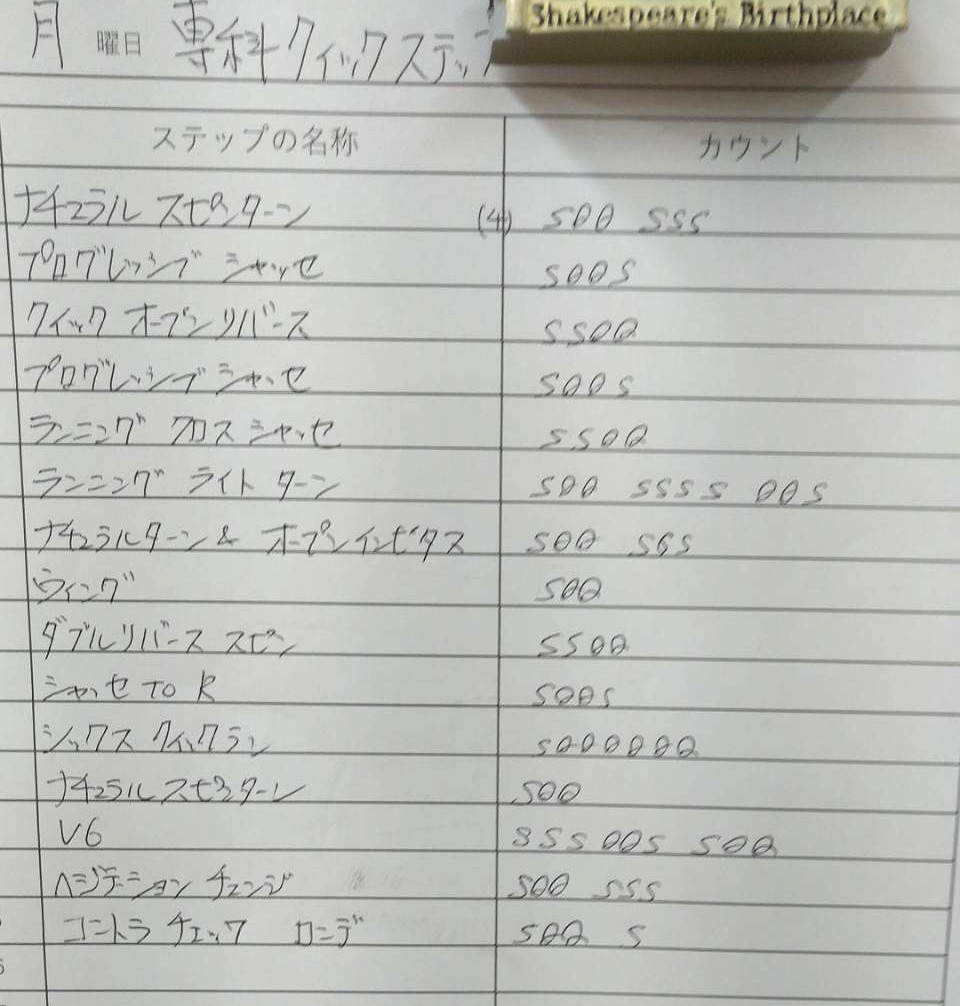 Shakespeare's Birthplace
月 曜日 専科クイックステップ
ステップの名称 カウント
ナチュラル スピンターン (4) SQQ SSS
プログレッシブ シャッセ SQQS
クイック オープンリバース SSQQ
プログレッシブ シャッセ SQQS
ランニング クロス シャッセ SSQQ
ランニング ライト ターン SQQ SSSS QQS
ナチュラルターン & オープンインピタス SQQ SSS
ウィング SQQ
ダブルリバース スピン SSQQ
シャッセ TO R SQQS
シックス クイックラン SQQQQQQ
ナチュラルスピンターン SQQ
V6 SSS QQS SQQ
ヘジテーション チェンジ SQQ SSS
コントラ チェック ロンデ SQQ S